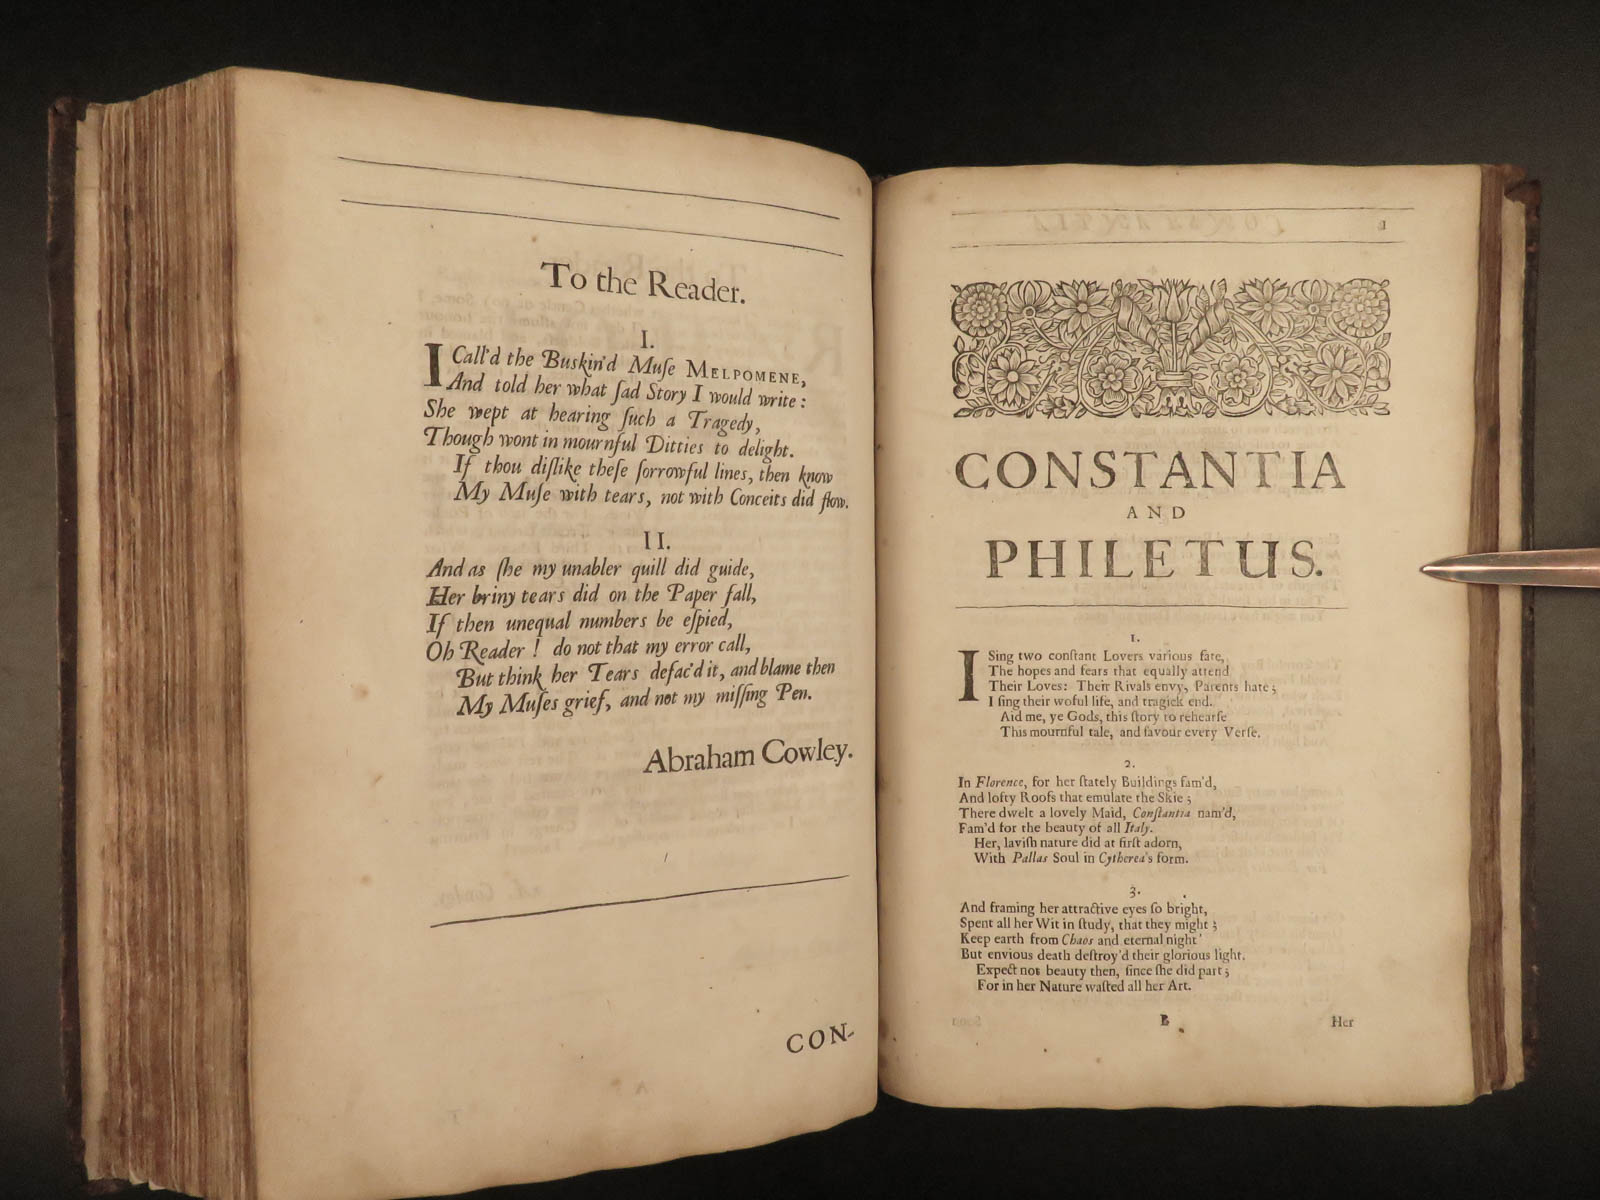 To the Reader.
I.
I Call'd the Buskin'd Muſe MELPOMENE,
And told her what ſad Story I would write:
She wept at hearing ſuch a Tragedy,
Though wont in mournful Ditties to delight.
If thou diſlike theſe ſorrowful lines, then know
My Muſe with tears, not with Conceits did flow.
II.
And as ſhe my unabler quill did guide,
Her briny tears did on the Paper fall,
If then unequal numbers be eſpied,
Oh Reader! do not that my error call,
But think her Tears defac'd it, and blame then
My Muſes grief, and not my miſſing Pen.
Abraham Cowley.
CON-
CONSTANTIA
AND
PHILETUS.
1.
I Sing two conſtant Lovers various fate,
The hopes and fears that equally attend
Their Loves: Their Rivals envy, Parents hate;
I ſing their woful life, and tragick end.
Aid me, ye Gods, this ſtory to rehearſe
This mournful tale, and favour every Verſe.
2.
In Florence, for her ſtately Buildings fam'd,
And lofty Roofs that emulate the Skie;
There dwelt a lovely Maid, Conſtantia nam'd,
Fam'd for the beauty of all Italy.
Her, laviſh nature did at firſt adorn,
With Pallas Soul in Cytherea's form.
3.
And framing her attractive eyes ſo bright,
Spent all her Wit in ſtudy, that they might;
Keep earth from Chaos and eternal night'
But envious death deſtroy'd their glorious light.
Expect not beauty then, ſince ſhe did part;
For in her Nature waſted all her Art.
B
Her